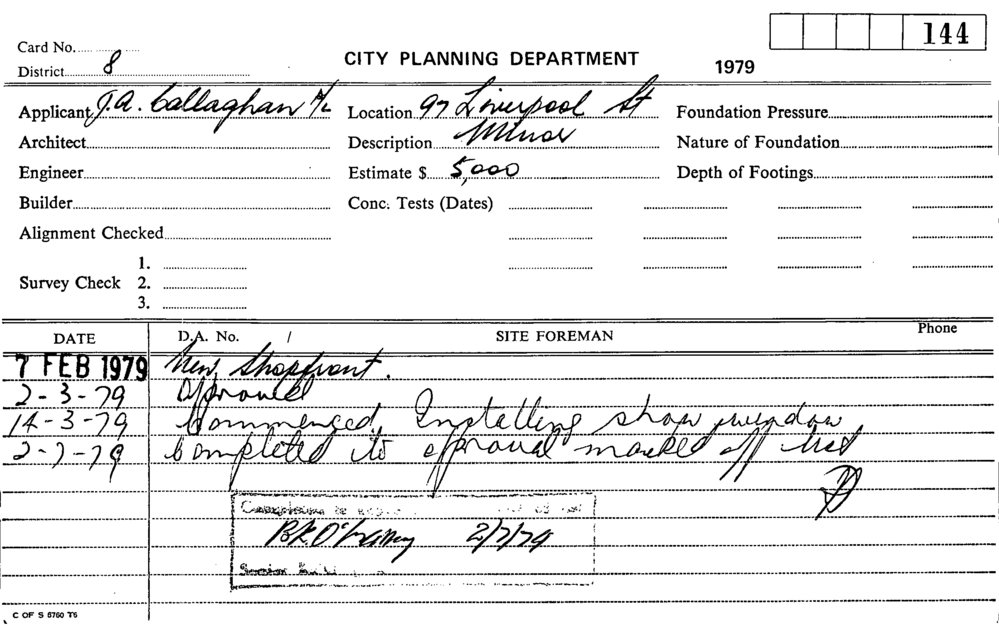 144
Card No.
District 8
CITY PLANNING DEPARTMENT
1979
Applicant J.A. Callaghan P/L Location 97 Liverpool St Foundation Pressure
Architect Description Minor Nature of Foundation
Engineer Estimate $ 5,000 Depth of Footings
Builder Conc. Tests (Dates)
Alignment Checked
1.
Survey Check 2.
3.
DATE D.A. No. / SITE FOREMAN Phone
7 FEB 1979 New Shopfront.
2-3-79 Approved
14-3-79 Commenced, Installing shop window
2-7-79 Completed to approval marked off list
2/7/79
Senior
C OF S 6760 T5